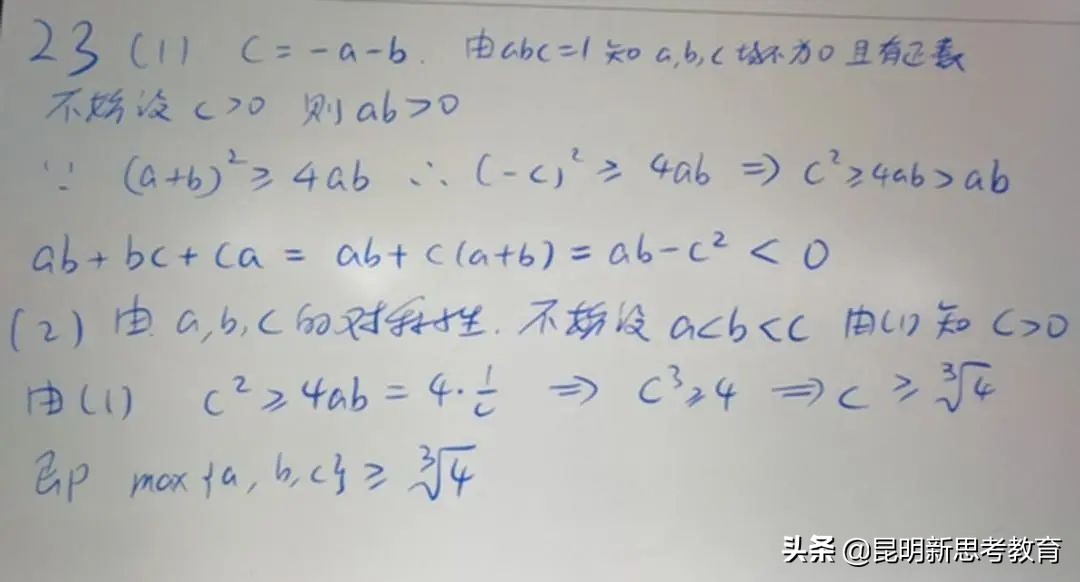 23 (1) C = -a-b. 由abc=1知 a,b,c 均不为0 且有正数
不妨设 c>0 则 ab>0
∵ (a+b)² ≥ 4ab ∴ (-c)² ≥ 4ab ⇒ c²≥4ab>ab
ab+bc+ca = ab+c(a+b) = ab-c² < 0
(2) 由 a,b,c 的对称性. 不妨设 a<b<c 由(1)知 c>0
由(1) c² ≥ 4ab = 4·1/c ⇒ c³≥4 ⇒ c ≥ ∛4
即 max{a,b,c} ≥ ∛4
头条 @昆明新思考教育